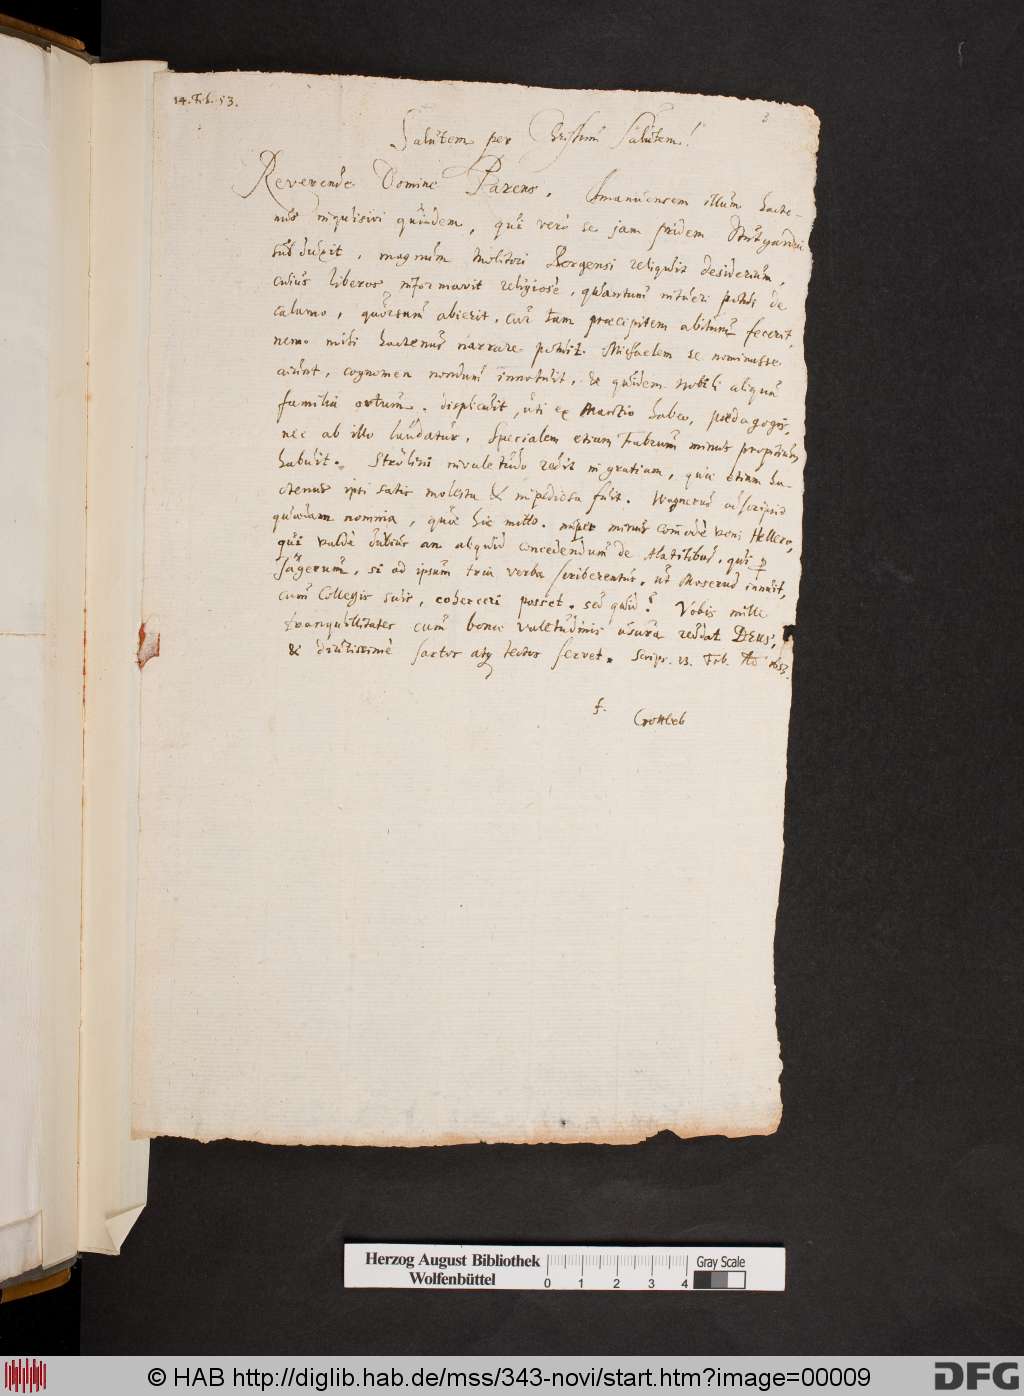 14. Feb. 53.
3
Salutem per Christum Salutem!
Reverende Domine Parens. Amanuensem illum hacte-
nus inquisivi quidem, qui vero se jam pridem Stutgardia
subduxit, magnum Molitori Borgensi reliquit desiderium,
cuius liberos informavit religiosè, quantum intueri potui de
calamo, quorsum abierit. Cur tam præcipitem abitum fecerit,
nemo mihi hactenus narrare potuit. Michaelem se nominasse
aiunt, cognomen nondum innotuit, & quidem nobili aliqua
familia ortum. displicuit, uti ex Martio habeo, pædagogis,
nec ab illo laudatur. Specialem etiam Fabrum minus propitium
habuit. Strölini nivaletudo redit in gratiam, quæ etiam ha-
ctenus ipsi satis molesta & impediosa fuit. Wagnerus adscripsit
quædam nomina, quæ hic mitto. nuper minus commodè veni Hellero,
qui valdè dubius an aliquid concedendum de
Jägerum, si ad ipsum tria verba scriberentur, ut Moserus innuit,
cum Collegis suis, coherceri posset. sed quid? Vobis mille
tranquillitates cum bonæ valetudinis usura reddat DEUS,
& diutissimè sartos atq tectos servet. Scrips. 13. Feb. Ao 1653.
f. Gottlieb
Herzog August Bibliothek
Wolfenbüttel
0 1 2 3 4
Gray Scale
© HAB http://diglib.hab.de/mss/343-novi/start.htm?image=00009
DFG